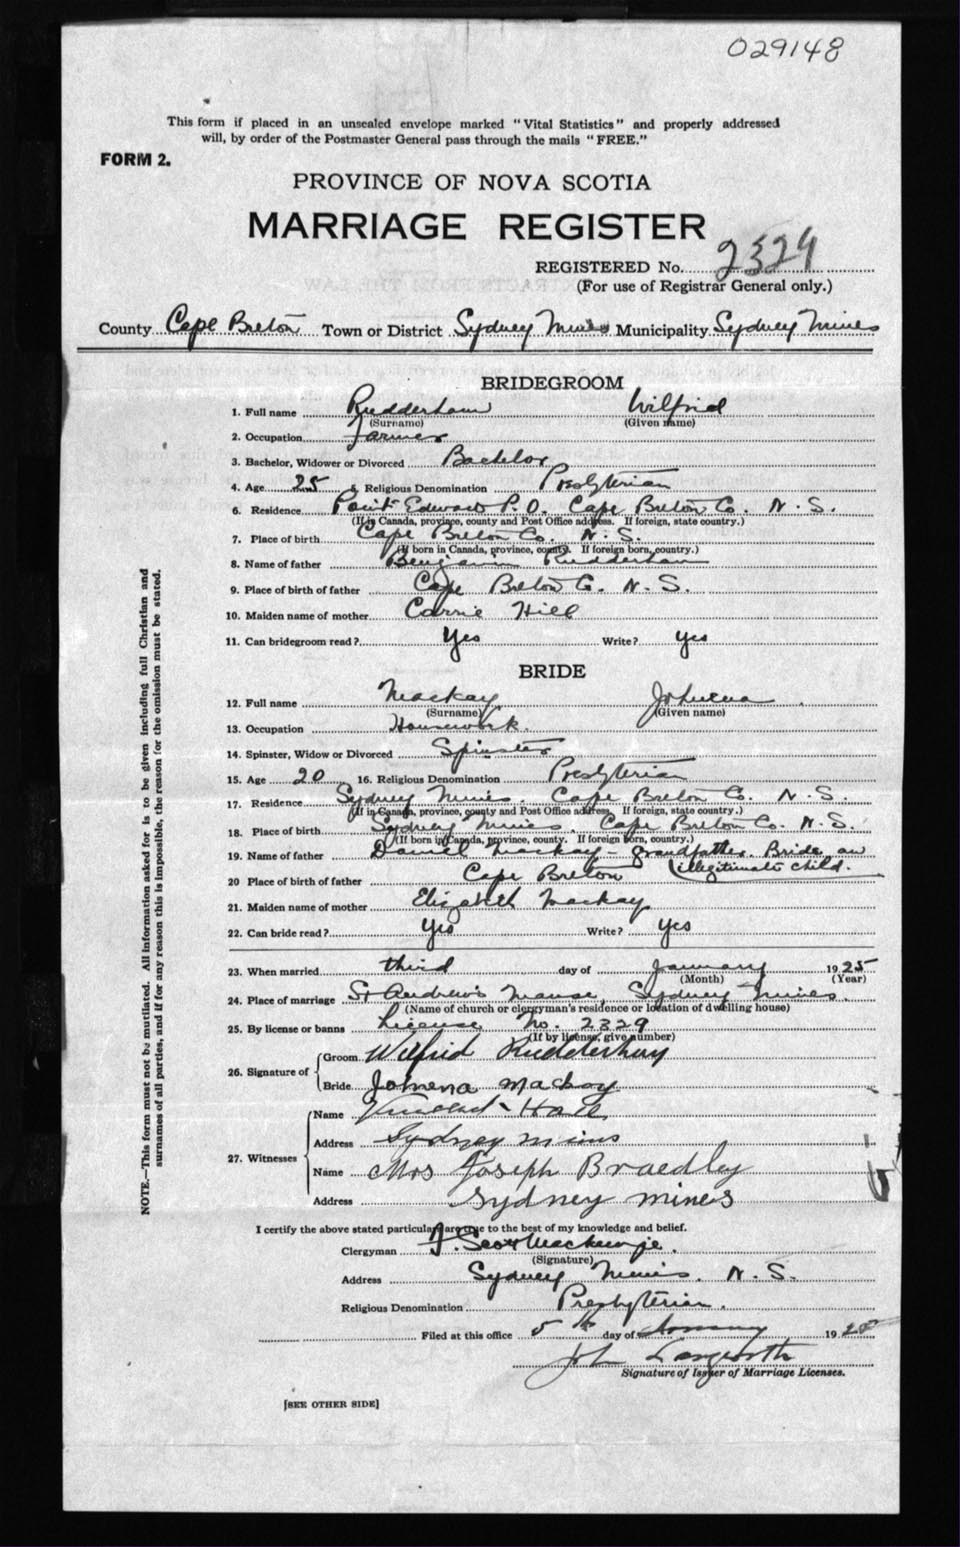 029148
This form if placed in an unsealed envelope marked "Vital Statistics" and properly addressed
will, by order of the Postmaster General pass through the mails "FREE."
FORM 2.
PROVINCE OF NOVA SCOTIA
MARRIAGE REGISTER
REGISTERED No. 2329
(For use of Registrar General only.)
County Cape Breton Town or District Sydney Mines Municipality Sydney Mines
BRIDEGROOM
1. Full name Rudderham Wilfrid
(Surname) (Given name)
2. Occupation Farmer
3. Bachelor, Widower or Divorced Bachelor
4. Age 25 5. Religious Denomination Presbyterian
6. Residence Point Edward P.O. Cape Breton Co. N.S.
(If in Canada, province, county and Post Office address. If foreign, state country.)
7. Place of birth Cape Breton Co. N.S.
(If born in Canada, province, county. If foreign born, country.)
8. Name of father Benjamin Rudderham
9. Place of birth of father Cape Breton Co. N.S.
10. Maiden name of mother Carrie Hill
11. Can bridegroom read? Yes Write? yes
BRIDE
12. Full name Mackay Johnena
(Surname) (Given name)
13. Occupation Housework
14. Spinster, Widow or Divorced Spinster
15. Age 20 16. Religious Denomination Presbyterian
17. Residence Sydney Mines, Cape Breton Co. N.S.
(If in Canada, province, county and Post Office address. If foreign, state country.)
18. Place of birth Sydney Mines, Cape Breton Co. N.S.
(If born in Canada, province, county. If foreign born, country.)
19. Name of father Daniel Mackay - grandfather. Bride an
illegitimate child.
20 Place of birth of father Cape Breton
21. Maiden name of mother Elizabeth Mackay
22. Can bride read? yes Write? yes
23. When married third day of January 1925
(Month) (Year)
24. Place of marriage St Andrew's Manse, Sydney Mines.
(Name of church or clergyman's residence or location of dwelling house)
25. By license or banns License No. 2329
(If by license, give number)
26. Signature of Groom Wilfrid Rudderham
Bride Johnena Mackay
27. Witnesses
Name
Address Sydney mines
Name Mrs Joseph Braedley
Address Sydney mines
I certify the above stated particulars are true to the best of my knowledge and belief.
Clergyman J. Scott Mackenzie.
(Signature)
Address Sydney Mines. N.S.
Religious Denomination Presbyterian.
Filed at this office 5th day of January 19
John Langworth
Signature of Issuer of Marriage Licenses.
[SEE OTHER SIDE]
NOTE.—This form must not be mutilated. All information asked for is to be given including full Christian and
surnames of all parties, and if for any reason this is impossible, the reason for the omission must be stated.